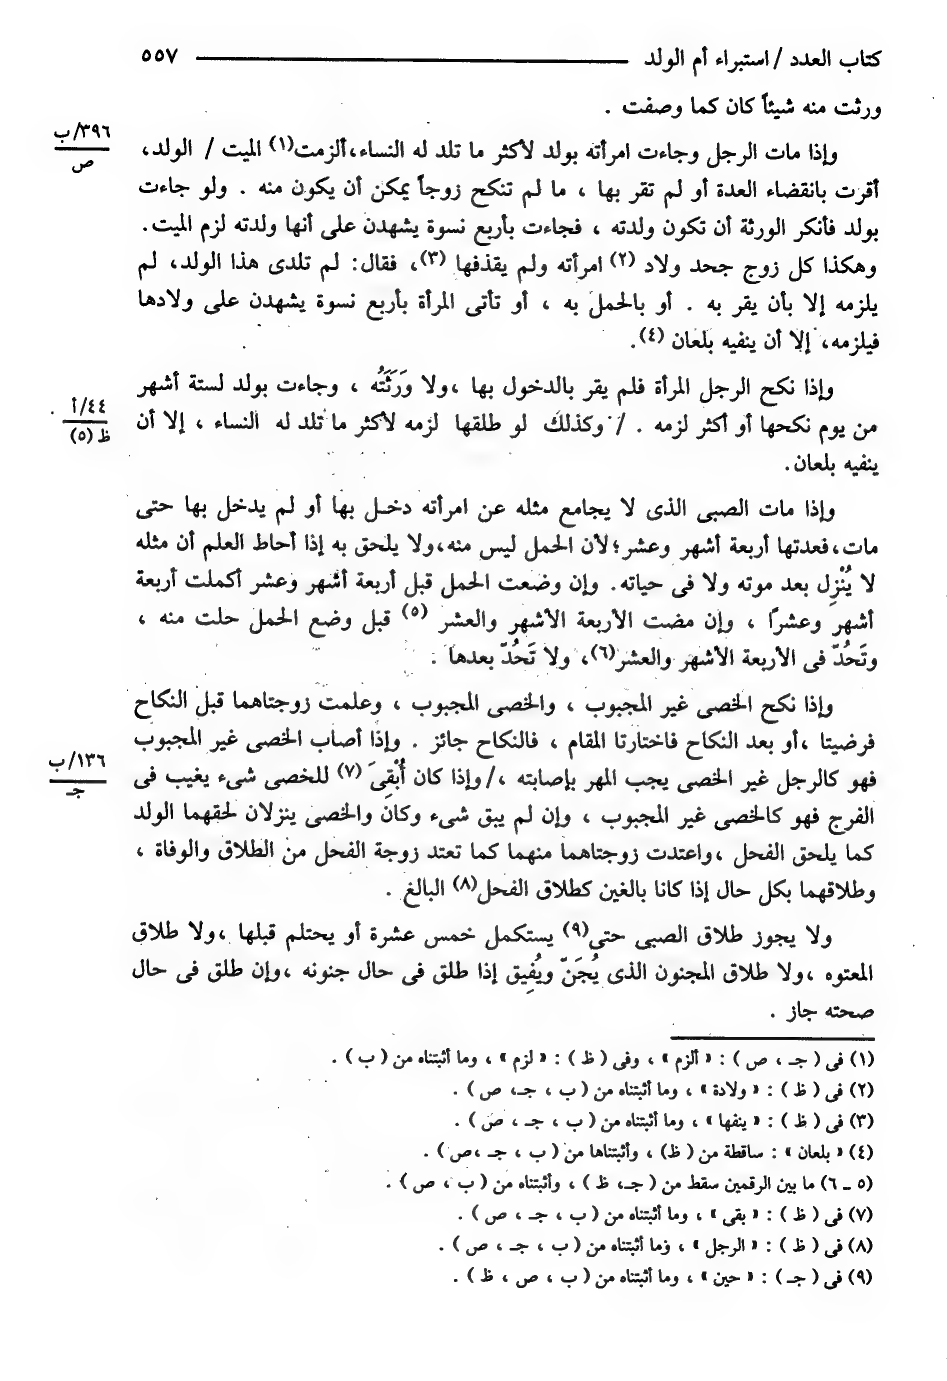 كتاب العدد / استبراء أم الولد ٥٥٧
ورثت منه شيئاً كان كما وصفت .
٣٩٦/ب
ص
وإذا مات الرجل وجاءت امرأته بولد لأكثر ما تلد له النساء،ألزمت(١) الميت / الولد،
أقرت بانقضاء العدة أو لم تقر بها ، ما لم تنكح زوجاً يمكن أن يكون منه . ولو جاءت
بولد فأنكر الورثة أن تكون ولدته ، فجاءت بأربع نسوة يشهدن على أنها ولدته لزم الميت.
وهكذا كل زوج جحد ولاد (٢) امرأته ولم يقذفها (٣)، فقال: لم تلدى هذا الولد، لم
يلزمه إلا بأن يقر به . أو بالحمل به ، أو تأتى المرأة بأربع نسوة يشهدن على ولادها
فيلزمه، إلا أن ينفيه بلعان (٤).
وإذا نكح الرجل المرأة فلم يقر بالدخول بها ،ولا وَرَثَتُه ، وجاءت بولد لستة أشهر
٤٤/أ
ظ(٥)
من يوم نكحها أو أكثر لزمه . / وكذلك لو طلقها لزمه لأكثر ما تلد له النساء ، إلا أن
ينفيه بلعان.
وإذا مات الصبى الذى لا يجامع مثله عن امرأته دخل بها أو لم يدخل بها حتى
مات،فعدتها أربعة أشهر وعشر؛لأن الحمل ليس منه،ولا يلحق به إذا أحاط العلم أن مثله
لا يُنْزِل بعد موته ولا فى حياته. وإن وضعت الحمل قبل أربعة أشهر وعشر أكملت أربعة
أشهر وعشرًا ، وإن مضت الأربعة الأشهر والعشر (٥) قبل وضع الحمل حلت منه ،
وتَحُدّ فى الأربعة الأشهر والعشر(٦)، ولا تَحُدّ بعدها .
وإذا نكح الخصى غير المجبوب ، والخصى المجبوب ، وعلمت زوجتاهما قبل النكاح
فرضيتا ،أو بعد النكاح فاختارتا المقام ، فالنكاح جائز . وإذا أصاب الخصى غير المجبوب
١٣٦/ب
جـ
فهو كالرجل غير الخصى يجب المهر بإصابته ،/وإذا كان أُبْقِىَ (٧) للخصى شىء يغيب فى
الفرج فهو كالخصى غير المجبوب ، وإن لم يبق شىء وكان والخصى ينزلان لحقهما الولد
كما يلحق الفحل ،واعتدت زوجتاهما منهما كما تعتد زوجة الفحل من الطلاق والوفاة ،
وطلاقهما بكل حال إذا كانا بالغين كطلاق الفحل(٨) البالغ .
ولا يجوز طلاق الصبى حتى(٩) يستكمل خمس عشرة أو يحتلم قبلها ،ولا طلاق
المعتوه ،ولا طلاق المجنون الذى يُجَنّ ويُفِيق إذا طلق فى حال جنونه ،وإن طلق فى حال
صحته جاز .
(١) فى ( جـ ، ص ) : « ألزم » ، وفى ( ظ ) : « لزم » ، وما أثبتناه من ( ب ) .
(٢) فى ( ظ ) : « ولادة » ، وما أثبتناه من ( ب ، جـ، ص ) .
(٣) فى ( ظ ) : « ينفها » ، وما أثبتناه من ( ب ، جـ ، ص ) .
(٤) « بلعان » : ساقطة من ( ظ) ، وأثبتناها من ( ب ، جـ ،ص ) .
(٥ ـ ٦) ما بين الرقمين سقط من ( جـ، ظ ) ، وأثبتناه من ( ب ، ص ) .
(٧) فى ( ظ ) : « بقى » ، وما أثبتناه من ( ب ، جـ ، ص ) .
(٨) فى ( ظ ) : « الرجل » ، وما أثبتناه من ( ب ، جـ ، ص ) .
(٩) فى ( جـ ) : « حين » ، وما أثبتناه من ( ب ، ص ، ظ ) .